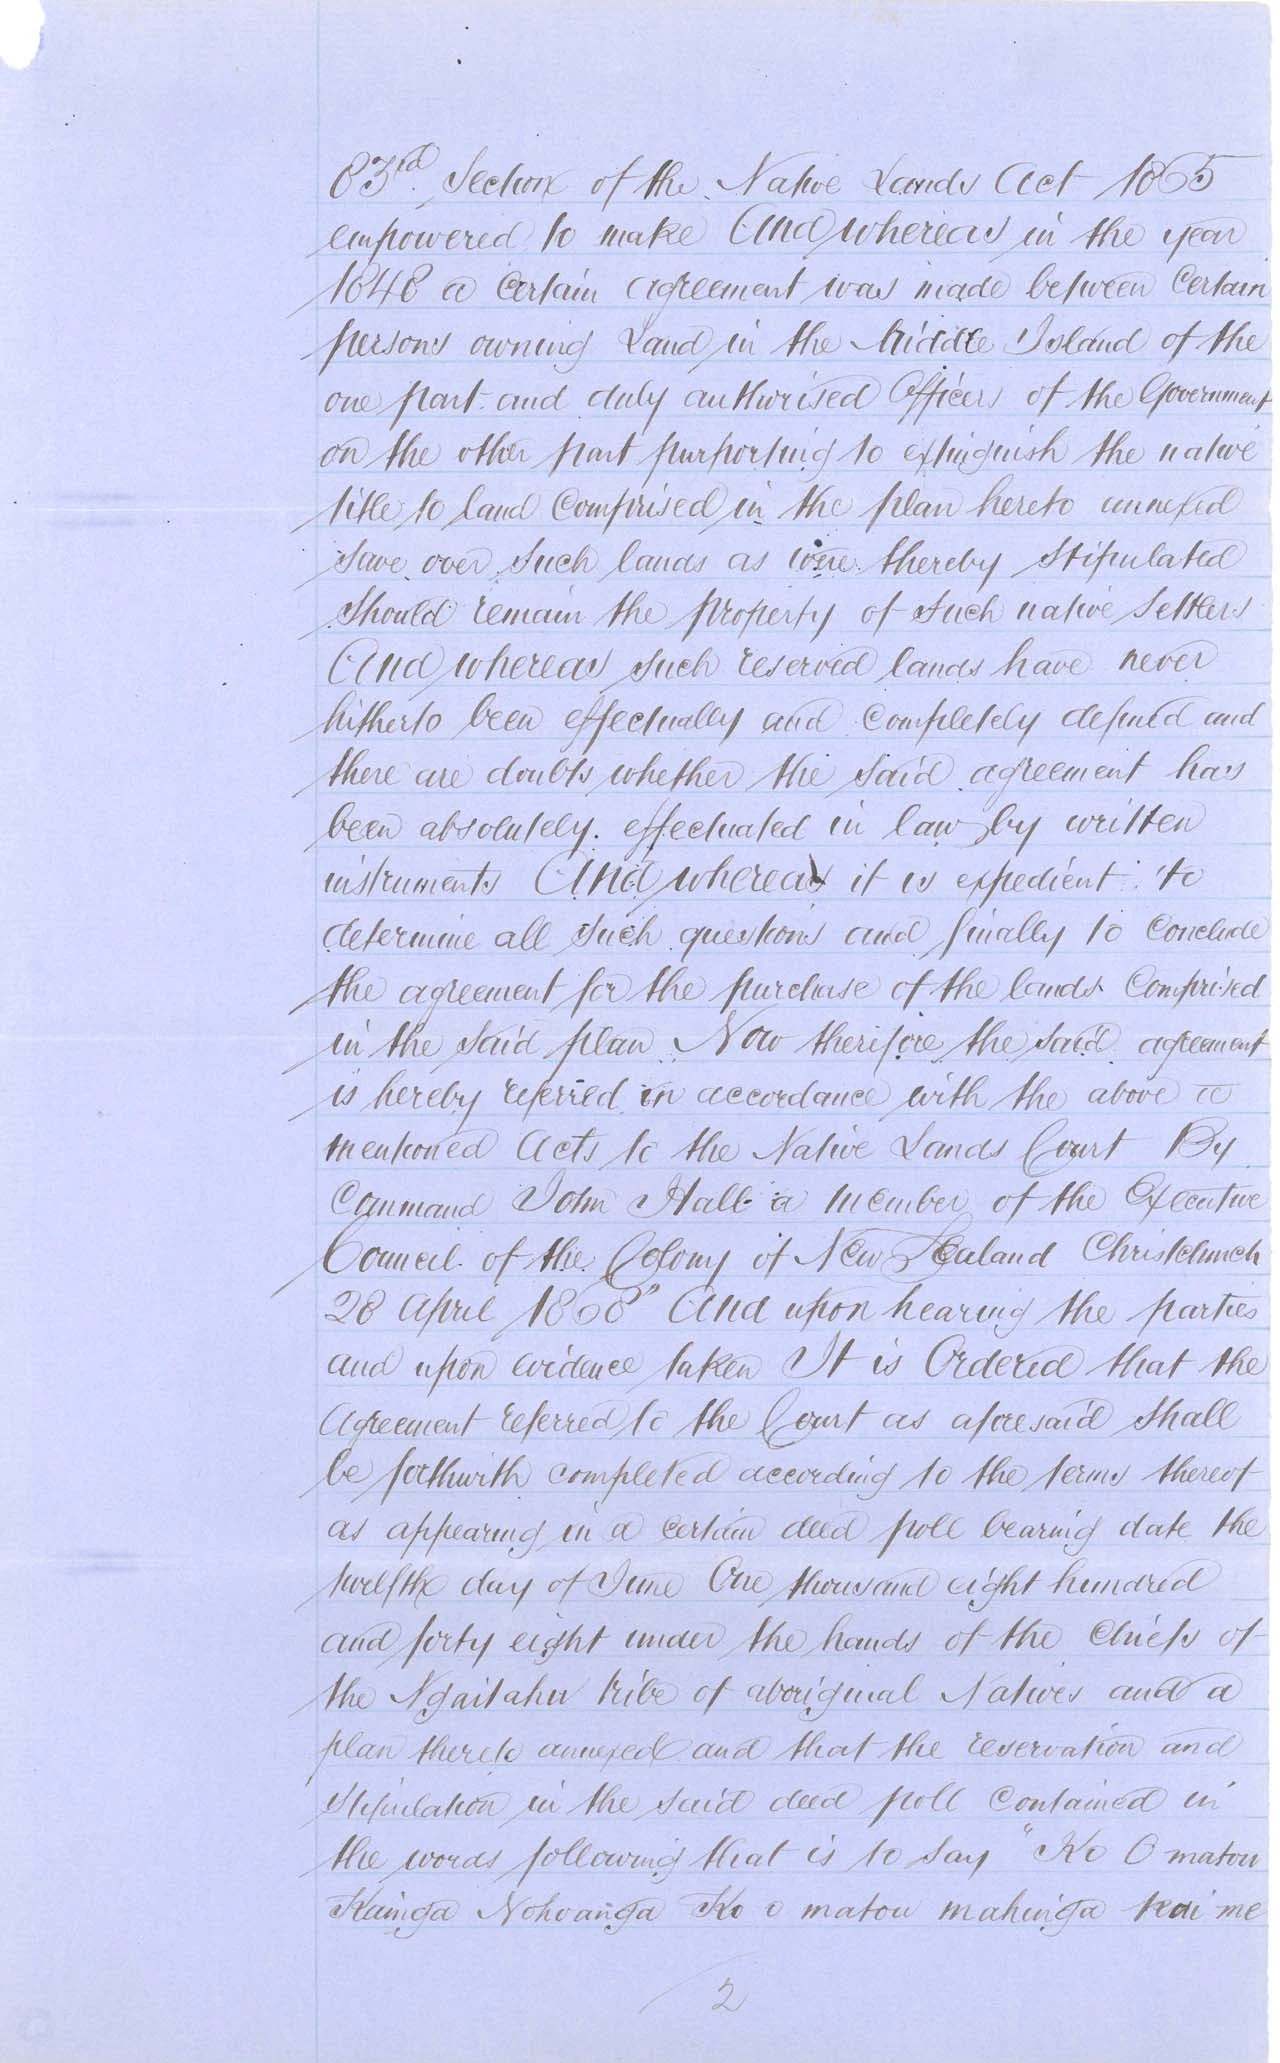 83rd. Section of the Native Lands Act 1865
empowered to make And whereas in the year
1848 a certain agreement was made between certain
persons owning Land in the Middle Island of the
one part and duly authorised Officers of the Government
on the other part purporting to extinguish the native
title to land comprised in the plan hereto annexed
save over such lands as were thereby stipulated
should remain the property of such native Settlers
And whereas such reserved lands have never
hitherto been effectually and completely defined and
there are doubts whether the said agreement has
been absolutely effectuated in law by written
instruments And whereas it is expedient to
determine all such questions and finally to conclude
the agreement for the purchase of the lands comprised
in the said plan Now therefore the said agreement
is hereby referred in accordance with the above
mentioned Acts to the Native Lands Court By
Command John Hall a member of the Executive
Council of the Colony of New Zealand Christchurch
28 April 1868" And upon hearing the parties
and upon evidence taken It is Ordered that the
Agreement referred to the Court as aforesaid shall
be forthwith completed according to the terms thereof
as appearing in a certain deed poll bearing date the
twelfth day of June One thousand eight hundred
and forty eight under the hands of the Chiefs of
the Ngaitahu tribe of aboriginal Natives and a
plan thereto annexed and that the reservation and
stipulation in the said deed poll contained in
the words following that is to say "Ko O matou
Kainga Nohoanga Ko o matou mahinga kai me
2